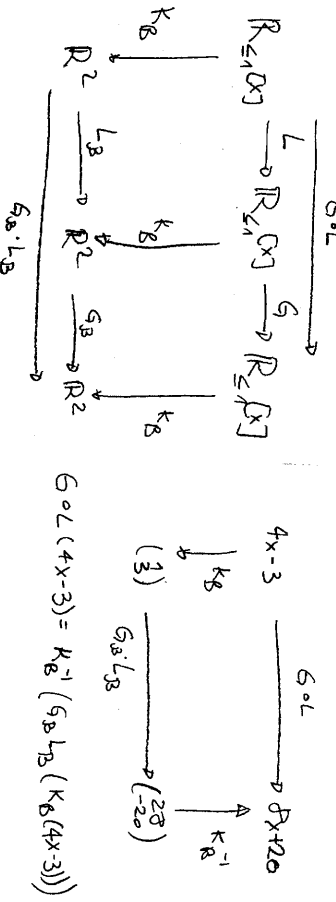 G∘L
ℝ≤1[x] L ℝ≤1[x] G ℝ≤1[x]
K_B K_B K_B
ℝ² L_B ℝ² G_B ℝ²
G_B·L_B
4x-3 G∘L 8x+20
K_B K_B⁻¹
(1 3) G_B·L_B (28 -20)
G∘L(4x-3) = K_B⁻¹(G_B L_B(K_B(4x-3)))